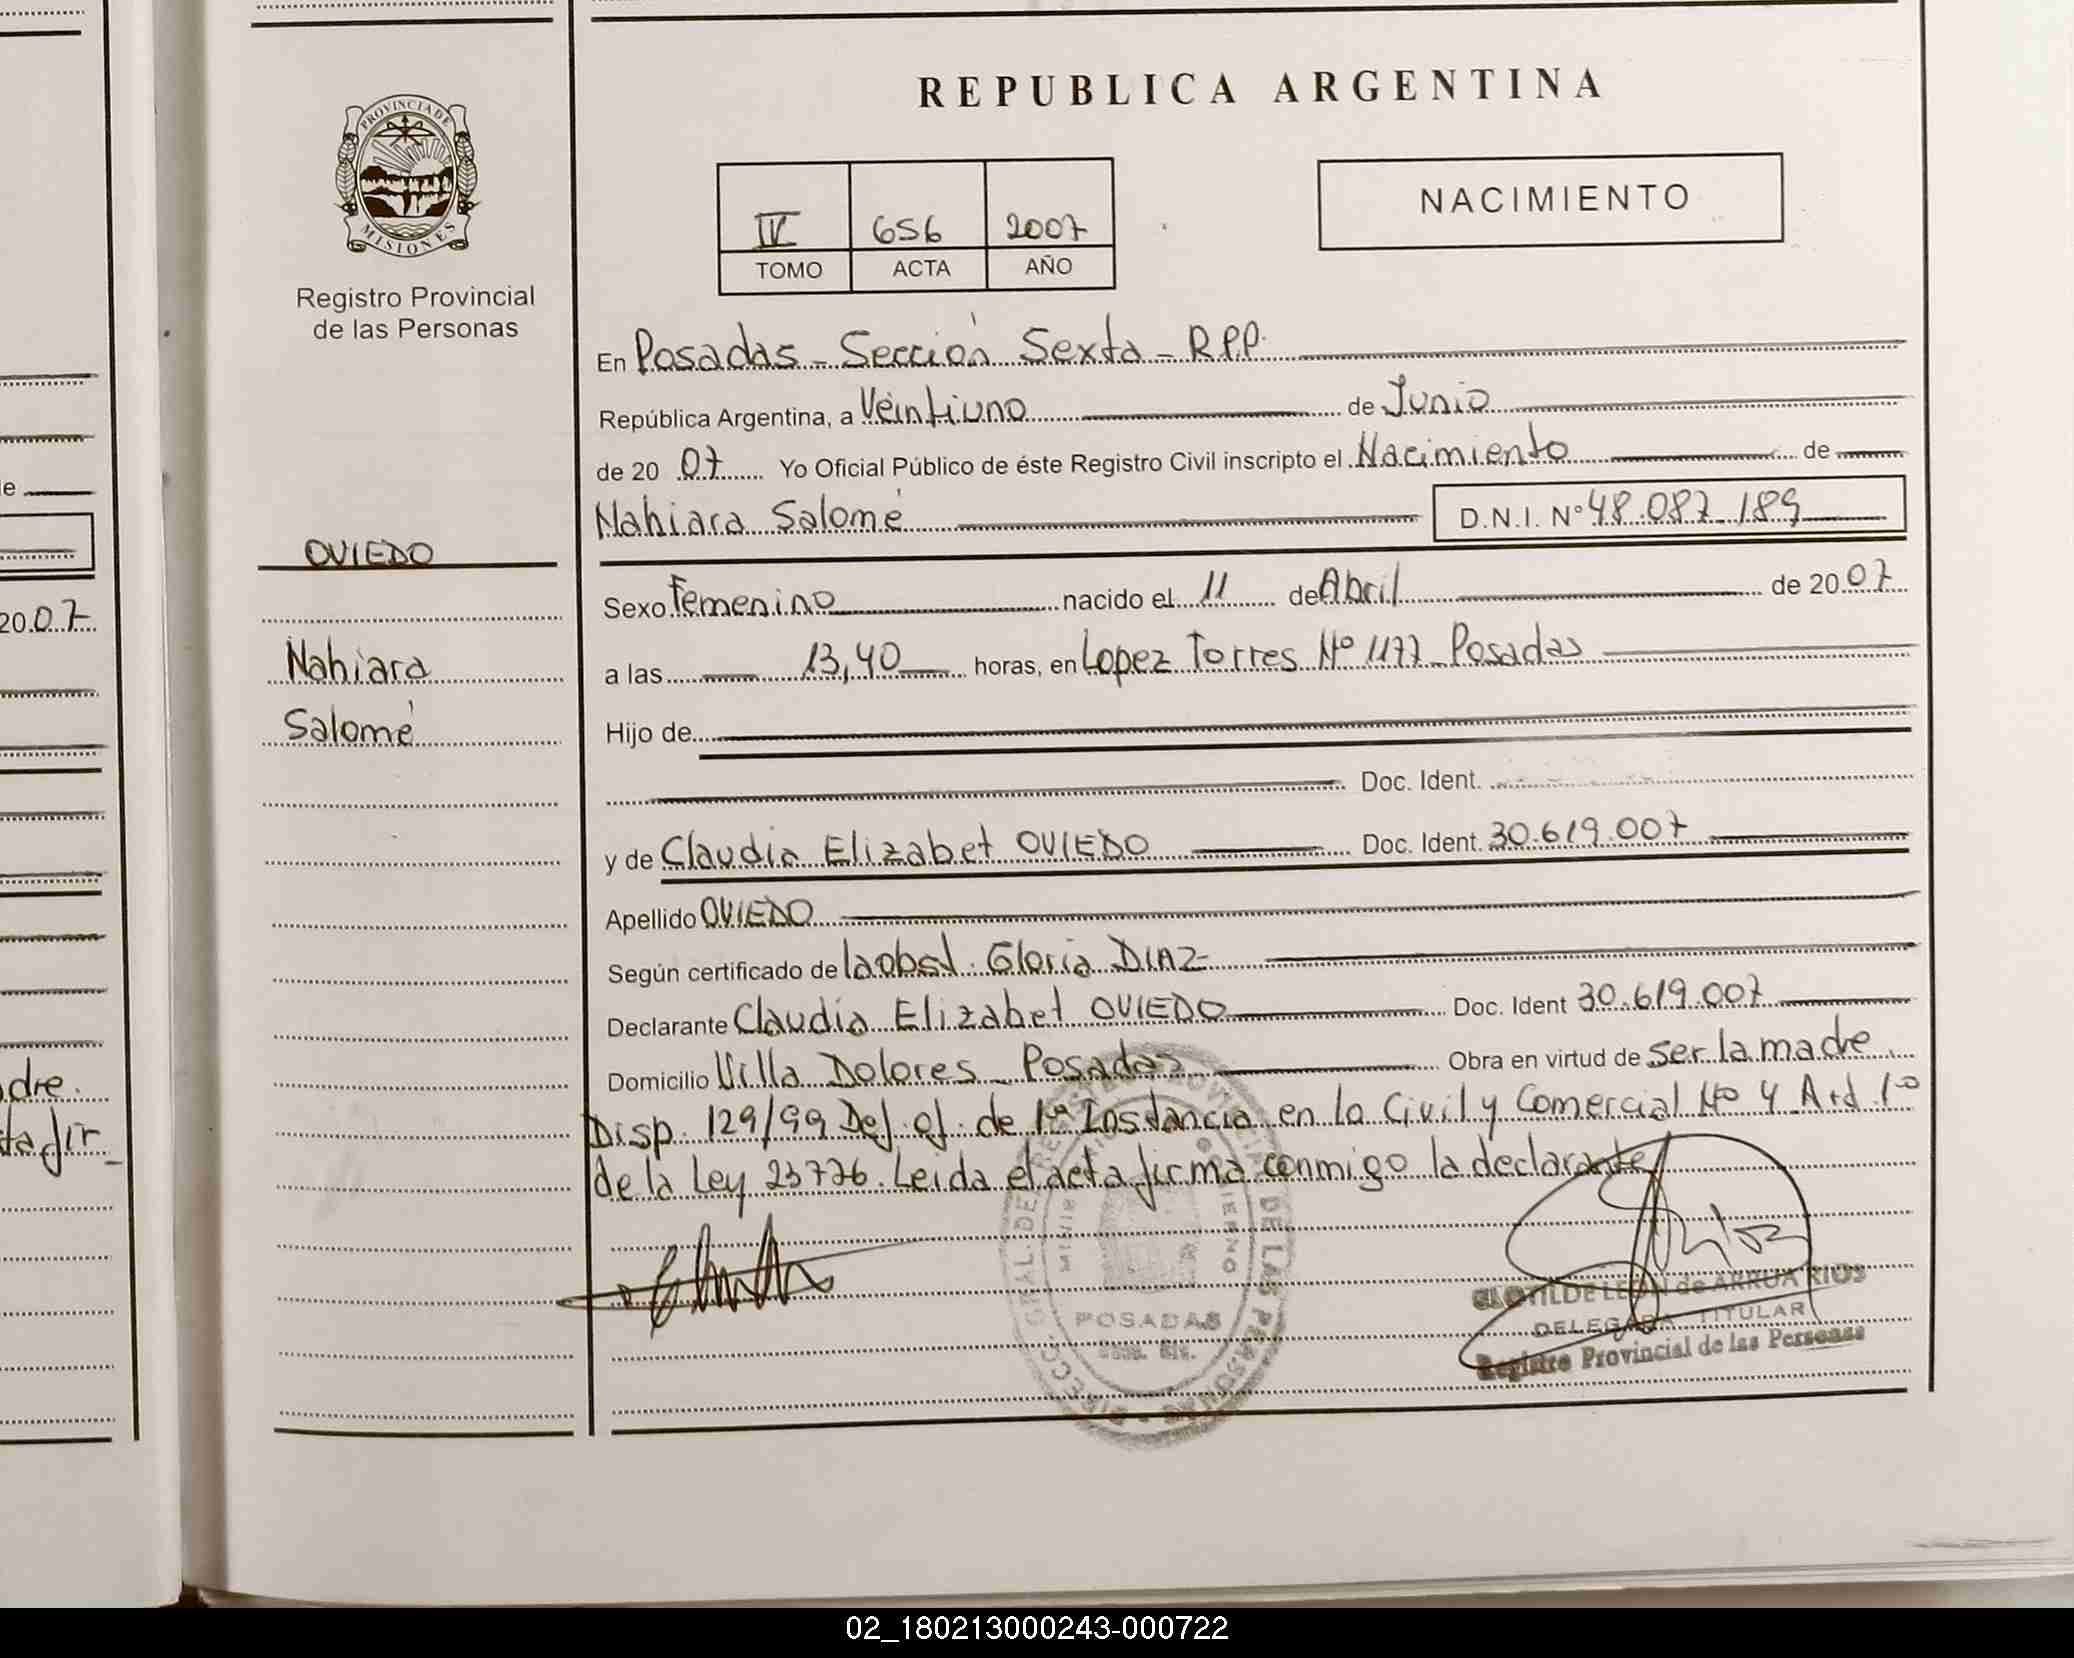 REPUBLICA ARGENTINA
PROVINCIA DE
MISIONES
Registro Provincial
de las Personas
IV 656 2007
TOMO ACTA AÑO
NACIMIENTO
OVIEDO
Nahiara
Salomé
En Posadas - Sección Sexta - R.P.P.
República Argentina, a Veintiuno de Junio
de 20 07 Yo Oficial Público de éste Registro Civil inscripto el Nacimiento de
Nahiara Salomé D.N.I. Nº 48.087.189
Sexo Femenino nacido el 11 de Abril de 20 07
a las 13,40 horas, en Lopez Torres Nº 1177 Posadas
Hijo de
Doc. Ident.
y de Claudia Elizabet OVIEDO Doc. Ident. 30.619.007
Apellido OVIEDO
Según certificado de la obst. Gloria DIAZ
Declarante Claudia Elizabet OVIEDO Doc. Ident 30.619.007
Domicilio Villa Dolores - Posadas Obra en virtud de ser la madre.
Disp. 129/99 Def. of. de 1ª Instancia en lo Civil y Comercial Nº 4 Art. 1º
de la Ley 23776. Leida el acta firma conmigo la declarante
POSADAS
CLOTILDE LEON de ARRUA RIOS
DELEGADA TITULAR
Registro Provincial de las Personas
e
20 07
dre.
ta fir_
02_180213000243-000722